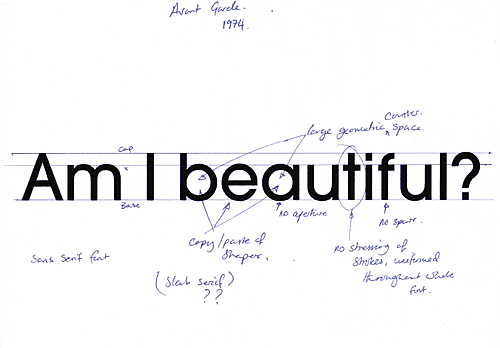 Avant Garde.
1974.
Counter.
large geometric ^ space.
cap
Am I beautiful?
x
Base
no aperture
no spurr.
Copy/paste of
Shapes.
no stressing of
Strokes, uniformed
throughout whole
font.
Sans Serif font
(Slab serif)
??